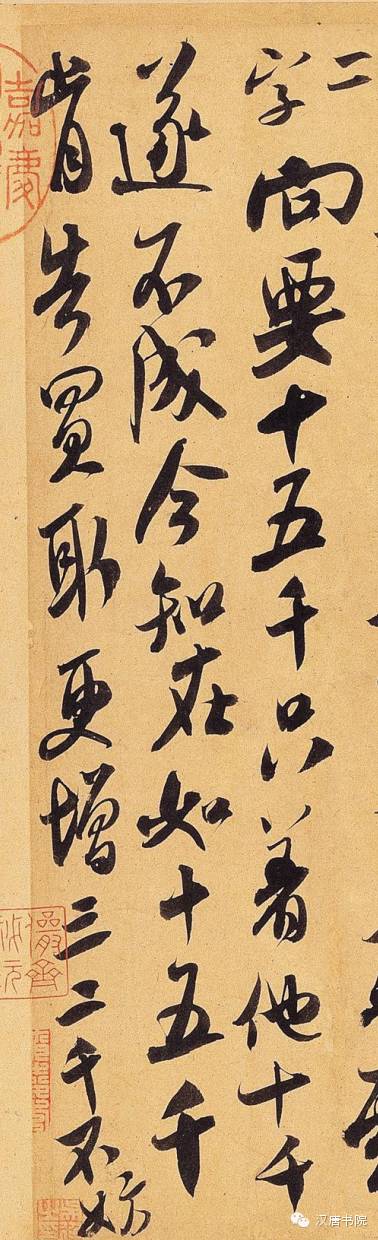 二
字向要十五千只着他十千
遂不成今知在如十五千
肯告買取更增三二千不妨
嘉慶
儼齋
汉唐书院